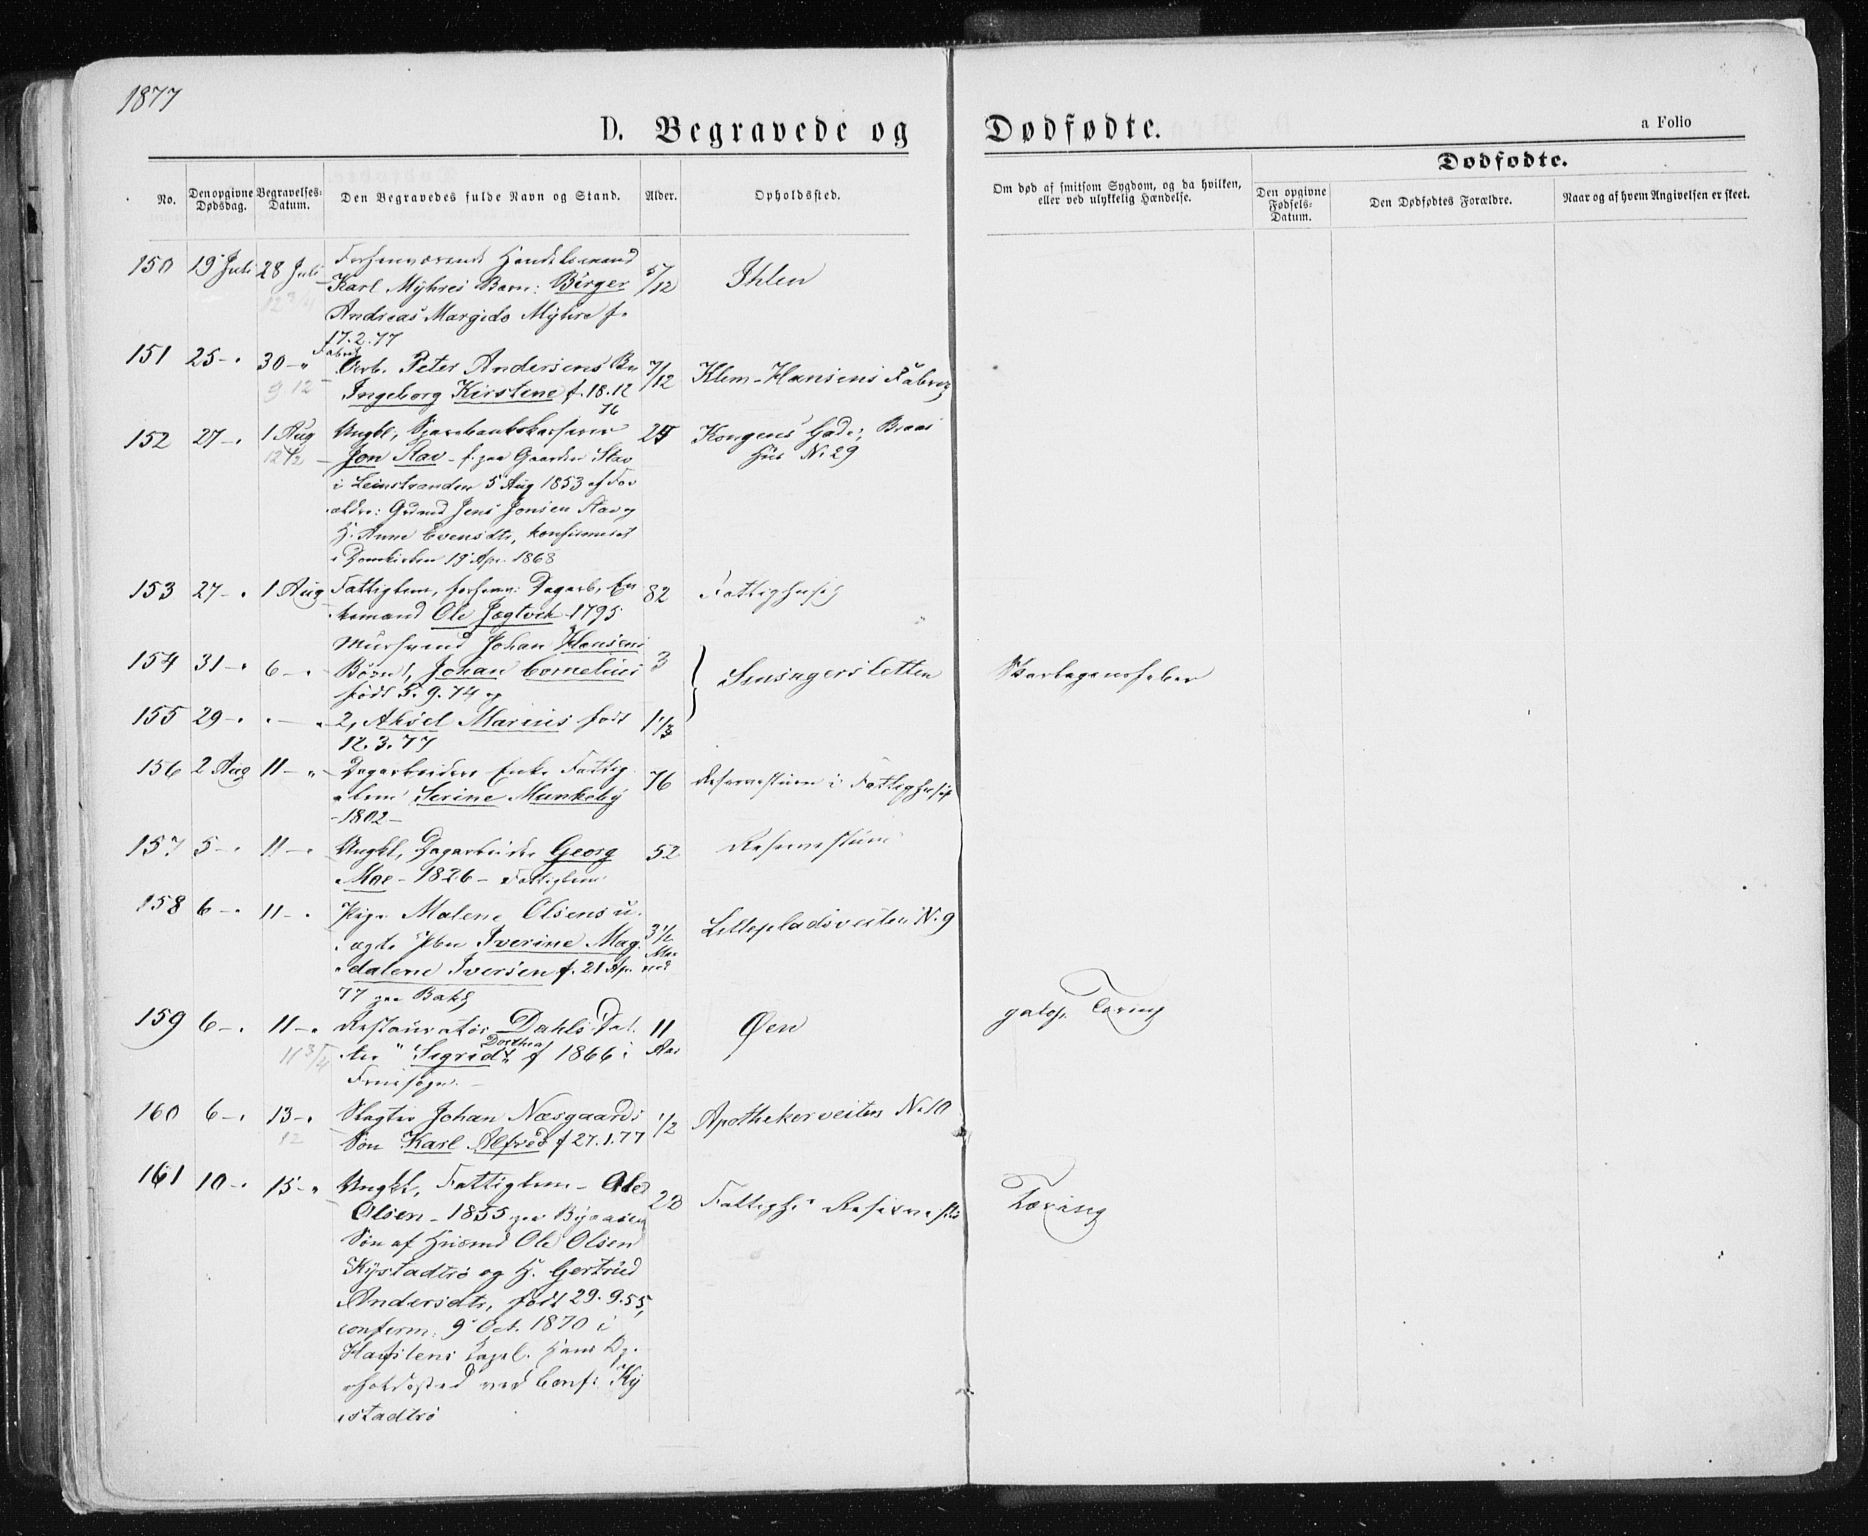 1877
D. Begravede og Dødfødte.
a Folio
No.
Den opgivne Dødsdag.
Begravelses-Datum.
Den Begravedes fulde Navn og Stand.
Alder.
Opholdssted.
Om død af smitsom Sygdom, og da hvilken, eller ved ulykkelig Hændelse.
Dødfødte.
Den opgivne Fødsels-Datum.
Den Dødfødtes Forældre.
Naar og af hvem Angivelsen er skeet.
150 19 Juli 28 Juli Forhenværende Handelsmand 5/12 Ihlen
12 3/4 Karl Myhres Barn: Birger
Andreas Margido Myhre f.
17.2.77
151 25 - " 30 - " Fabrik
Arb. Peter Andersens Bn 7/12 Klem-Hansens Fabrik
9.12 Ingeborg Kirstene f. 18.12
76
152 27 - " 1 Aug Ungkl, Sparebankskasserer 25 Kongens Gade, Braas
12 1/2 Jon Stav - f. paa Gaarden Stav Hus N. 29
i Leinstranden 5 Aug 1853 af For
ældre: Grdmd Jens Jonsen Stav og
H. Anne Evensdtr, konfirmeret
i Domkirken 19 Apr. 1868
153 27 - " 1 Aug Fattiglem, forhenv: Dagarb, En 82 Fattighuset
kemand Ole Jægtvik 1795
Mursvend Johan Hansens
154 31 - " 6 - " Børn 1, Johan Cornelius 3 Skarlagensfeber
født 5.9.74 og
155 29 - " " - " 2, Aksel Marius født 1/3
12.3.77
156 2 Aug 11 - " Dagarbeiders Enke Fattig 76 Reservestuen i Fattighuset
lem Serine Munkeby
- 1802 -
157 5 - " 11 - " Ungkl, Dagarbeider Georg 52 Reservestuen
Moe - 1826 - Fattiglem
158 6 - " 11 - " Pige Malene Olsens u 3 1/2 Lillepladsveiten N. 9
ægte Pbn Iverine Mag Maa
dalene Iversen f. 21 Ap. ned
77 paa Bakl
159 6 - " 11 - " Restauratør Dahls Dat 11 Øen galop. Tæring
11 3/4 ter " Sigrid Dorthea f 1866 i Aar
Fruesogn. -
160 6 - " 13 - " Slagter Johan Næsgaards 1/2 Apothekerveiten N. 10
12 Søn Karl Alfred f 27.1.77
161 10 - " 15 - " Ungkl, Fattiglem - Ole 22 Fattigh: Reservest Tæring
Olsen - 1855 paa Byaasen
Søn af Husmd Ole Olsen
Kystadtrø og H. Gertrud
Andersdtr, født 29.9.55,
conferm: 9 Oct. 1870 i
Havsteens Capel. Hans Op
holdssted ved Conf: Ky
stadtrø